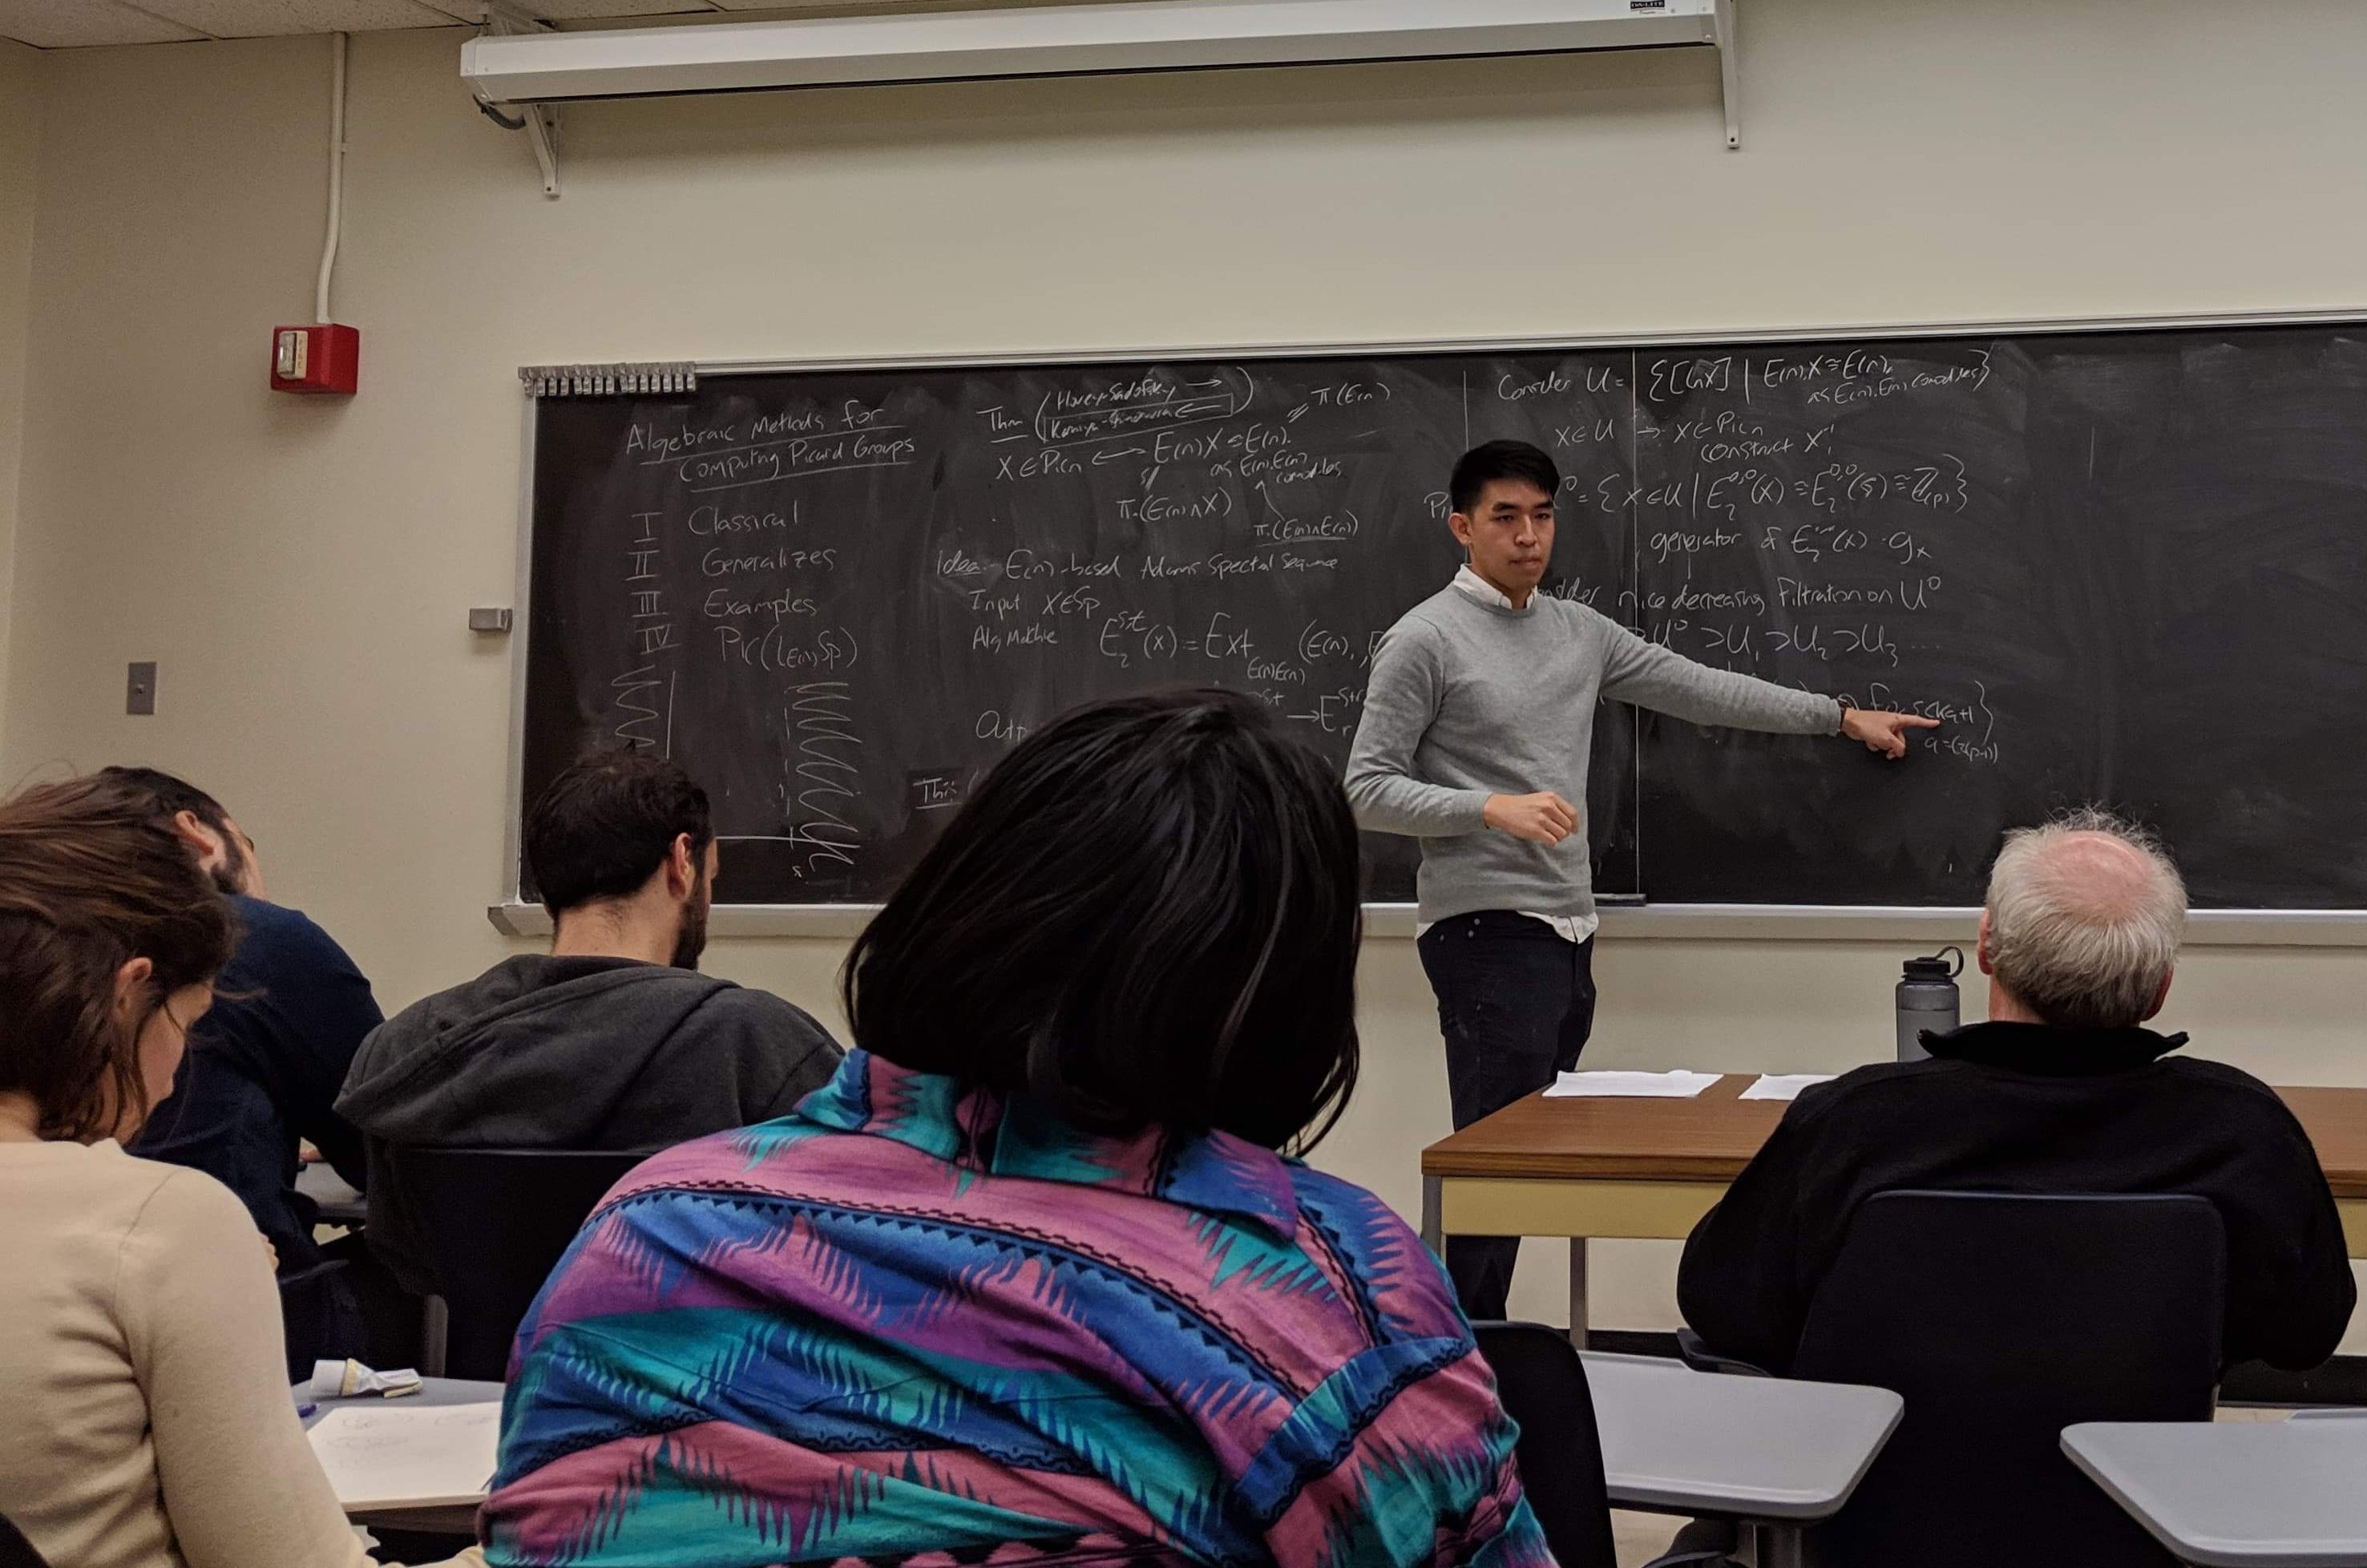 Algebraic Methods for
Computing Picard Groups
I Classical
II Generalizes
III Examples
IV Pic(L_E(n) Sp)
Thm (Hovey-Sadofsky →
Kamiya-Shimomura ←)
X ∈ Pic_n ⟷ E(n)_*X ≅ E(n)_*
as E(n)_*E(n)
comodules
π_*(E(n))
π_*(E(n)∧X)
π_*(E(n)∧E(n))
Idea - E(n)-based Adams Spectral Sequence
Input X ∈ Sp
Alg Machine E_2^{s,t}(X) = Ext_{E(n)_*E(n)} (E(n)_*,
Thm
Consider U = {[LnX] | E(n)_*X ≅ E(n)_*
as E(n)_*E(n) comodules}
X ∈ U → X ∈ Pic_n
construct X^-1
= {X ∈ U | E_2^{0,0}(X) ≅ E_2^{0,0}(S) ≅ Z_(p)}
generator of E_2^{0,0}(X) · g_X
nice decreasing filtration on U^0
U^0 ⊃ U_1 ⊃ U_2 ⊃ U_3 ...
for s<kq+1}
q=(2(p-1))